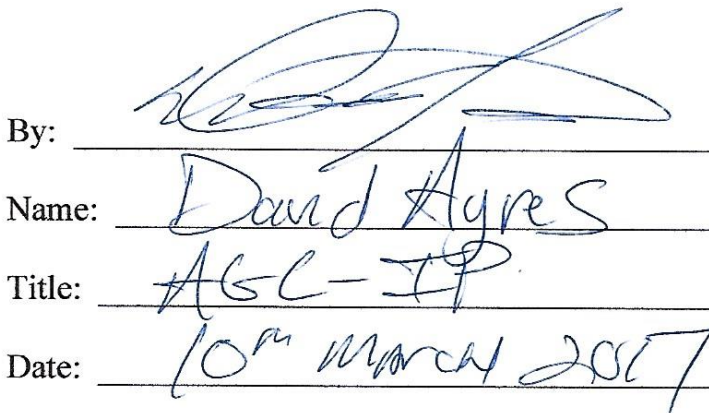 By:
Name: David Ayres
Title: AGC-IP
Date: 10th March 2017